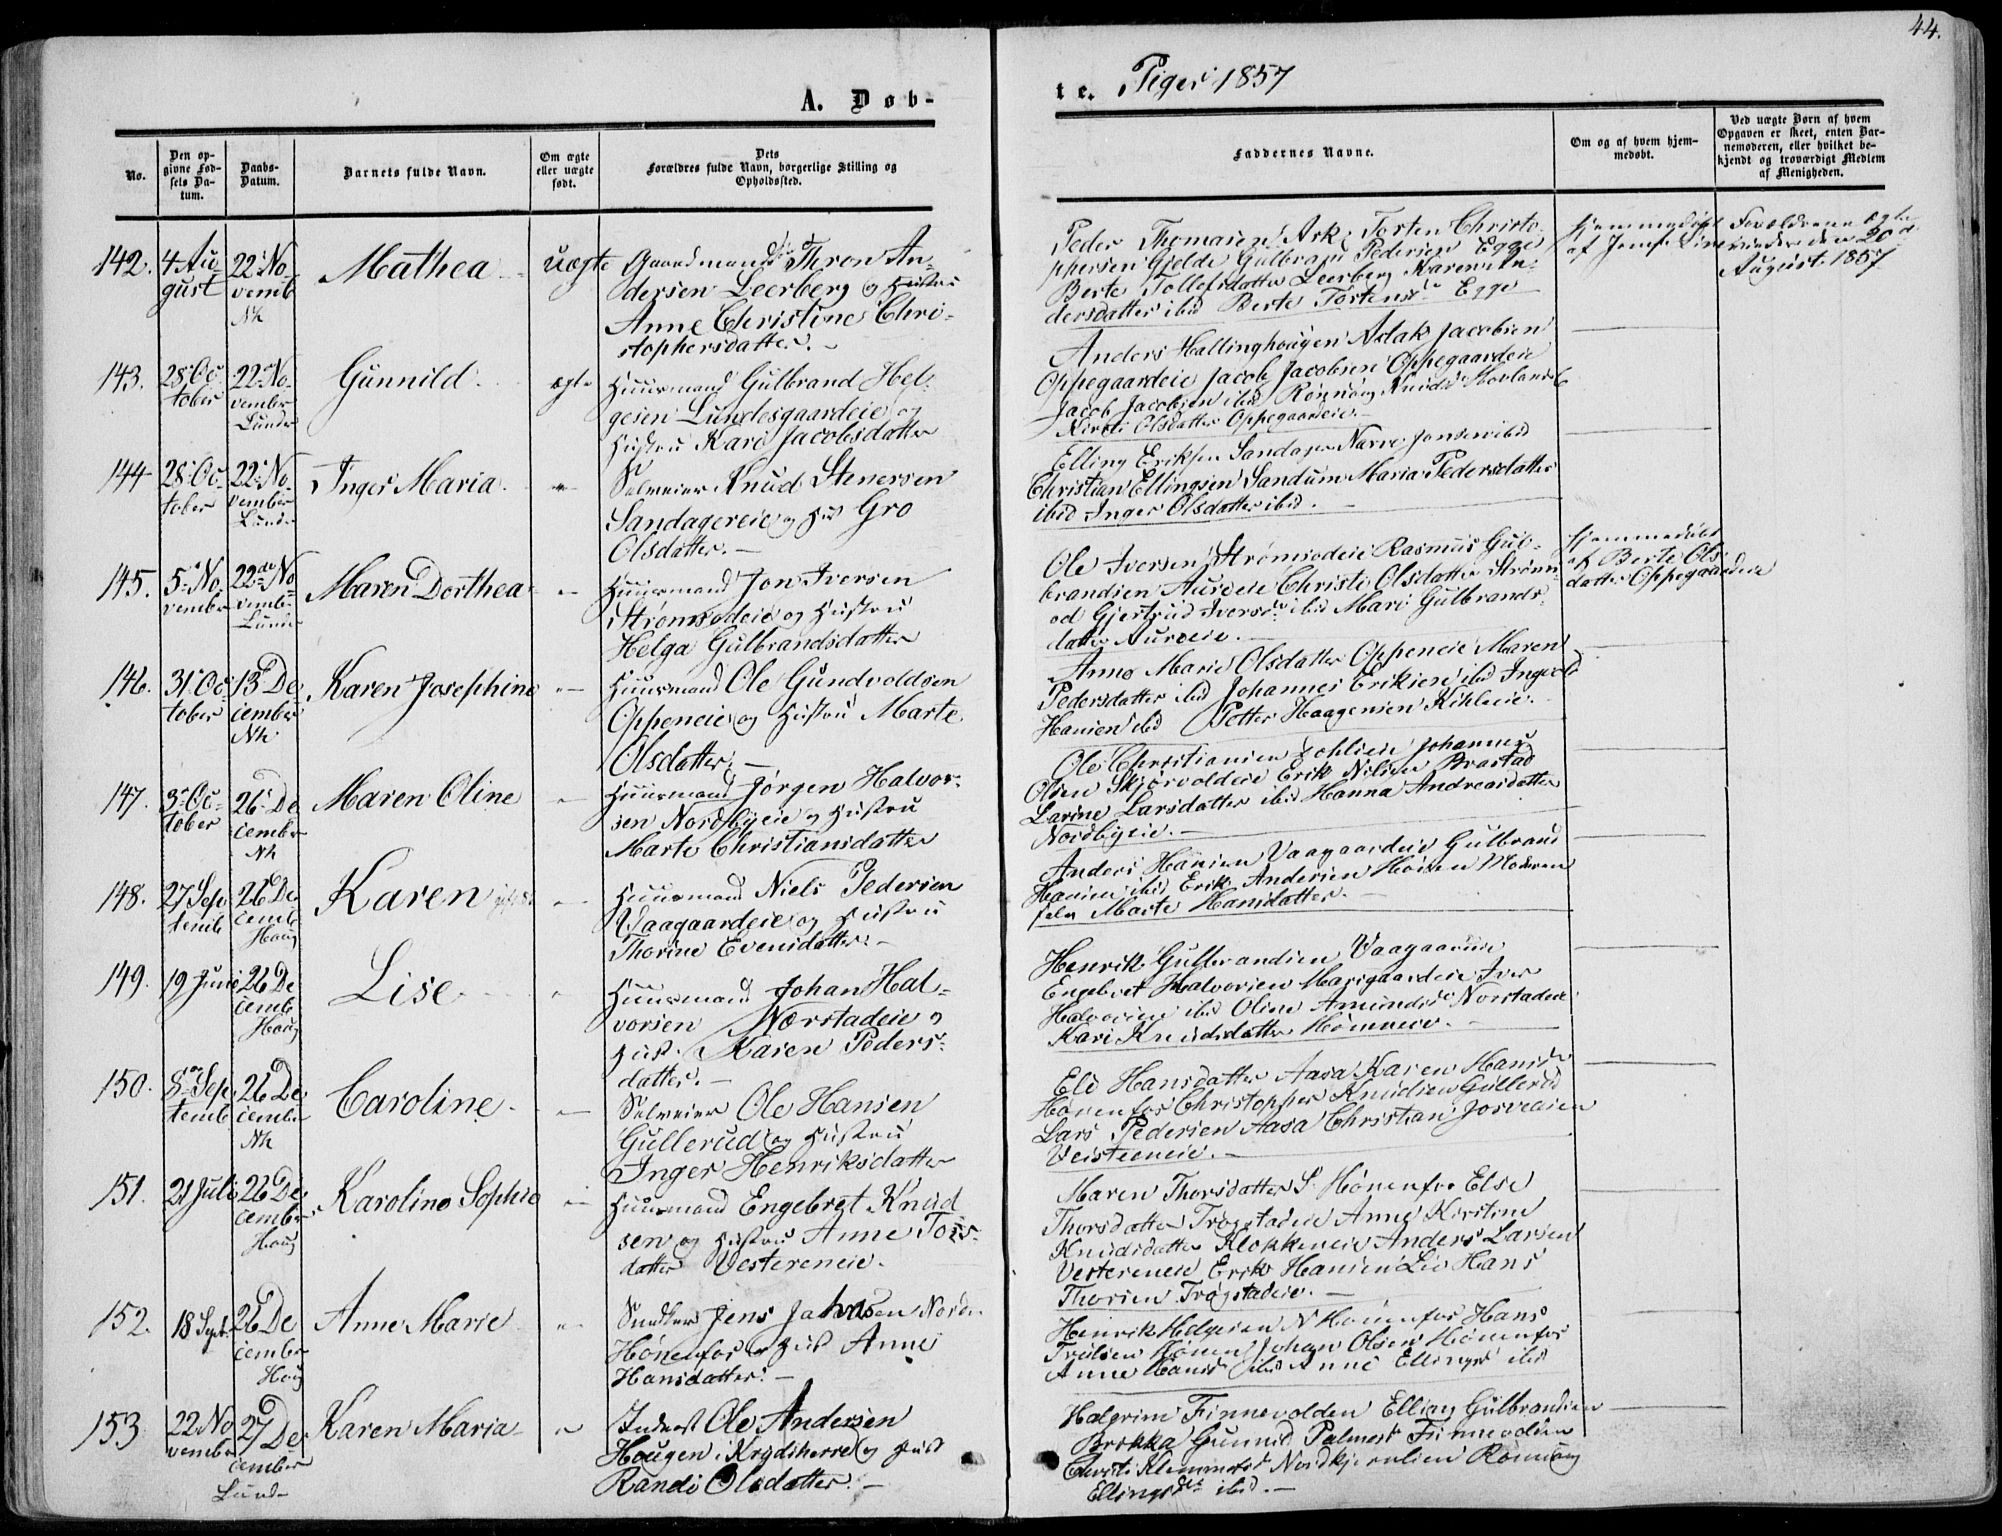 44.
A. Døb-
te. Piger 1857
No.
Den op-
givne Fød-
sels Da-
tum.
Daabs-
Datum.
Barnets fulde Navn.
Om ægte
eller uægte
født.
Dets
Forældres fulde Navn, borgerlige Stilling og
Opholdssted.
Faddernes Navne.
Om og af hvem hjem-
medøbt.
Ved uægte Børn af hvem
Opgaven er skeet, enten Bar-
nemoderen, eller hvilket be-
kjendt og troværdigt Medlem
af Menigheden.
142. 4 Au-
gust
22 No-
vemb
Nh
Mathea
uægte
Gaardmand Thron An-
dersen Leerberg og Hustru
Anne Christine Chri-
stophersdatter. -
Peder Thomasen Ask, Torsten Christo-
phersen Gjelde Gulbrand Pedersen Egge
Berte Tollefsdatter Leerberg Karen An-
dersdatter ibid Berte Torstensdr Egge
Hjemmedøbt
af
Forældrene ægte
viede den 20de
August 1857
143. 28 Oc-
tober
22 No-
vember
Lunde
Gunnild
ægte
Huusmand Gulbrand Hel-
gesen Lundesgaardeie og
Hustru Kari Jacobsdatter
Anders Hallinghougen Aslak Jacobsen
Oppegaardeie Jacob Jacobsen Oppegaardeie
Jacob Jacobsen ibid Rønnøug Knudsd
Kirsti Olsdatter Oppegaardeie. -
144 28 Oc-
tober
22 No-
vember
Lunde
Inger Maria
Selveier Knud Stenersen
Sandagereie og Hus Gro
Olsdatter. -
Elling Eriksen Sandager Narve Jonsen ibid
Christian Ellingsen Sandum Maria Pedersdatter
ibid Inger Olsdatter ibid. -
145. 5 No-
vember
22de No-
vember
Lunde
Maren Dorthea
Huusmand Jon Iversen
Strømsodeie og Hustru
Helga Gulbrandsdatter
Ole Iversen Strømsodeie Rasmus Gul-
brandsen Aureeie Christi Olsdatter Strøms-
od Gjertrud Iversdr ibid Mari Gulbrands-
datter Aureeie. -
Hjemmedøbt
af Berte Ols-
datter Oppegaardeie
146. 31 Oc-
tober
13 De-
cember
Nh
Karen Josephine
Huusmand Ole Gundvoldsen
Oppeneie og Hustru Marte
Olsdatter. -
Anne Marie Olsdatter Oppeneie Maren
Pedersdatter ibid Johannes Eriksen ibid Ingvold
Hansen ibid Petter Haagensen Kihleeie.
147. 3 Oc-
tober
26 De-
cember
Nh
Maren Oline
Huusmand Jørgen Halvor-
sen Nordbyeie og Hustru
Marte Christiansdatter
Ole Christiansen Johannes
Olsen Skjørvoldeie Erik Nilsen Brastad
Larine Larsdatter ibid Hanna Andreasdatter
Nordbyeie. -
148. 27 Sep-
temb
26 De-
cemb
Houg
Karen
Huusmand Niels Pedersen
Vaagaardeie og Hustru
Thorine Evensdatter. -
Anders Hansen Vaagaardeie Gulbrand
Hansen ibid Erik Andersen Hønen Moderen
selv Marte Hansdatter. -
149. 19 Juni
26 De-
cemb
Houg
Lise
Huusmand Johan Hal-
vorsen Nørstadeie og
Hust. Karen Peders-
datter. -
Henrik Gulbrandsen Vaagaardeie
Engebret Halvorsen Marigaardeie Iver
Halvorsen ibid Oline Amundsdr Norstadeie
Kari Knudsdatter Hønneeie. -
150. 8 Sep-
temb
26 De-
cember
Nh
Caroline
Selveier Ole Hansen
Gullerud og Hustru
Inger Henriksdatter
Eli Hansdatter Aasa Karen Hansdr
Hønenfos Christopher Knudsen Gullerud
Lars Pedersen Aasa Christian
Veisteeneie. -
151. 21 Juli
26 De-
cember
Houg
Karoline Sophie
Huusmand Engebret Knud-
sen og Hustru Anne Tors-
datter Vestereneie.
Maren Thorsdatter S. Hønenfos Else
Thorsdatter Trøgstadeie Anne Kirstine
Knudsdatter Klokkeneie Anders Larsen
Vestereneie Erik Hansen Lio Hans
Thorsen Trøgstadeie. -
152. 18 Sept.
26 De-
cember
Houg
Anne Marie
Snedker Jens Johnsen Nordr.
Hønenfos og Hust Anne
Hansdatter. -
Henrik Helgesen N Hønenfos Hans
Trulsen Hønen Johan Olsen Hønenfos
Anne Hansd ibid Anne Ellingsd ibid
153 22 No-
vember
27 De-
cember
Lunde
Karen Maria
Inderst Ole Andersen
Hougen i Krydsherred og Hust
Randi Olsdatter. -
Halgrim Finnevolden Elling Gulbrandsen
Brokka Gunnild Palmesd Finnevolden
Christi Klemmetsd Rønnoug
Ellingsdtr ibid. -